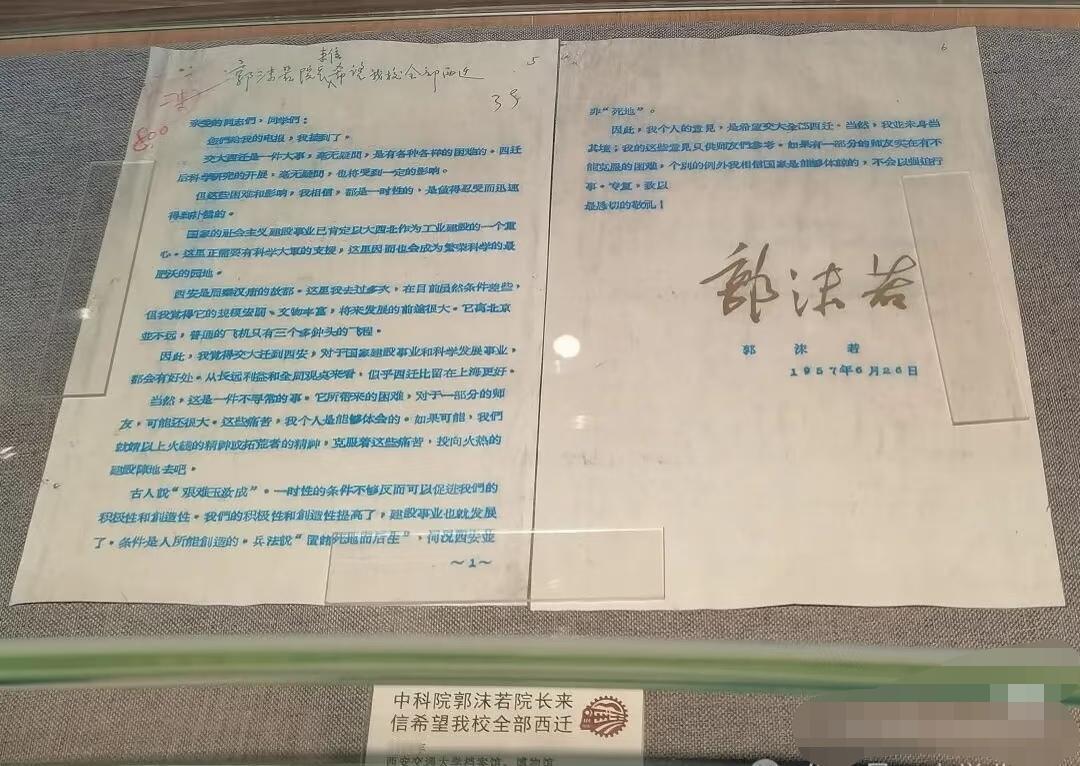 来信
郭沫若院长希望我校全部西迁
5
3号
800
亲爱的同志們，同学們：
您們給我的电报，我接到了。
交大西迁是一件大事，毫无疑問，是有各种各样的困难的。西迁
后科学研究的开展，毫无疑問，也将受到一定的影响。
但这些困难和影响，我相信，都是一时性的，是值得忍受而迅速
得到补偿的。
国家的社会主义建設事业已肯定以大西北作为工业建設的一个重
心。这里正需要有科学大軍的支援，这里因而也会成为繁荣科学的最
肥沃的园地。
西安是周秦汉唐的故都。这里我去过多次，在目前虽然条件差些，
但我觉得它的規模宏闊、文物丰富，将来发展的前途很大。它离北京
並不远，普通的飞机只有三个多鈡头的飞程。
因此，我觉得交大迁到西安，对于国家建設事业和科学发展事业，
都会有好处。从长远利益和全局观点来看，似乎西迁比留在上海更好。
当然，这是一件不寻常的事。它所带来的困难，对于一部分的师
友，可能还很大。这些痛苦，我个人是能够体会的。如果可能，我們
就請以上火綫的精神或拓荒者的精神，克服着这些痛苦，投向火热的
建設陣地去吧。
古人說“艰难玉汝成”。一时性的条件不够反而可以促进我們的
积极性和創造性。我們的积极性和創造性提高了，建設事业也就发展
了。条件是人所能創造的。兵法說“置諸死地而后生”，何况西安並
～1～
6
非“死地”。
因此，我个人的意見，是希望交大全部西迁。当然，我並未身当
其境；我的这些意見只供师友們参考。如果有一部分的师友实在有不
能克服的困难，个別的例外我相信国家是能够体諒的，不会以强迫行
事。专复，致以
最恳切的敬礼！
郭沫若
郭 沫 若
1957年6月26日
中科院郭沫若院长来
信希望我校全部西迁
西安交通大学档案馆、博物馆